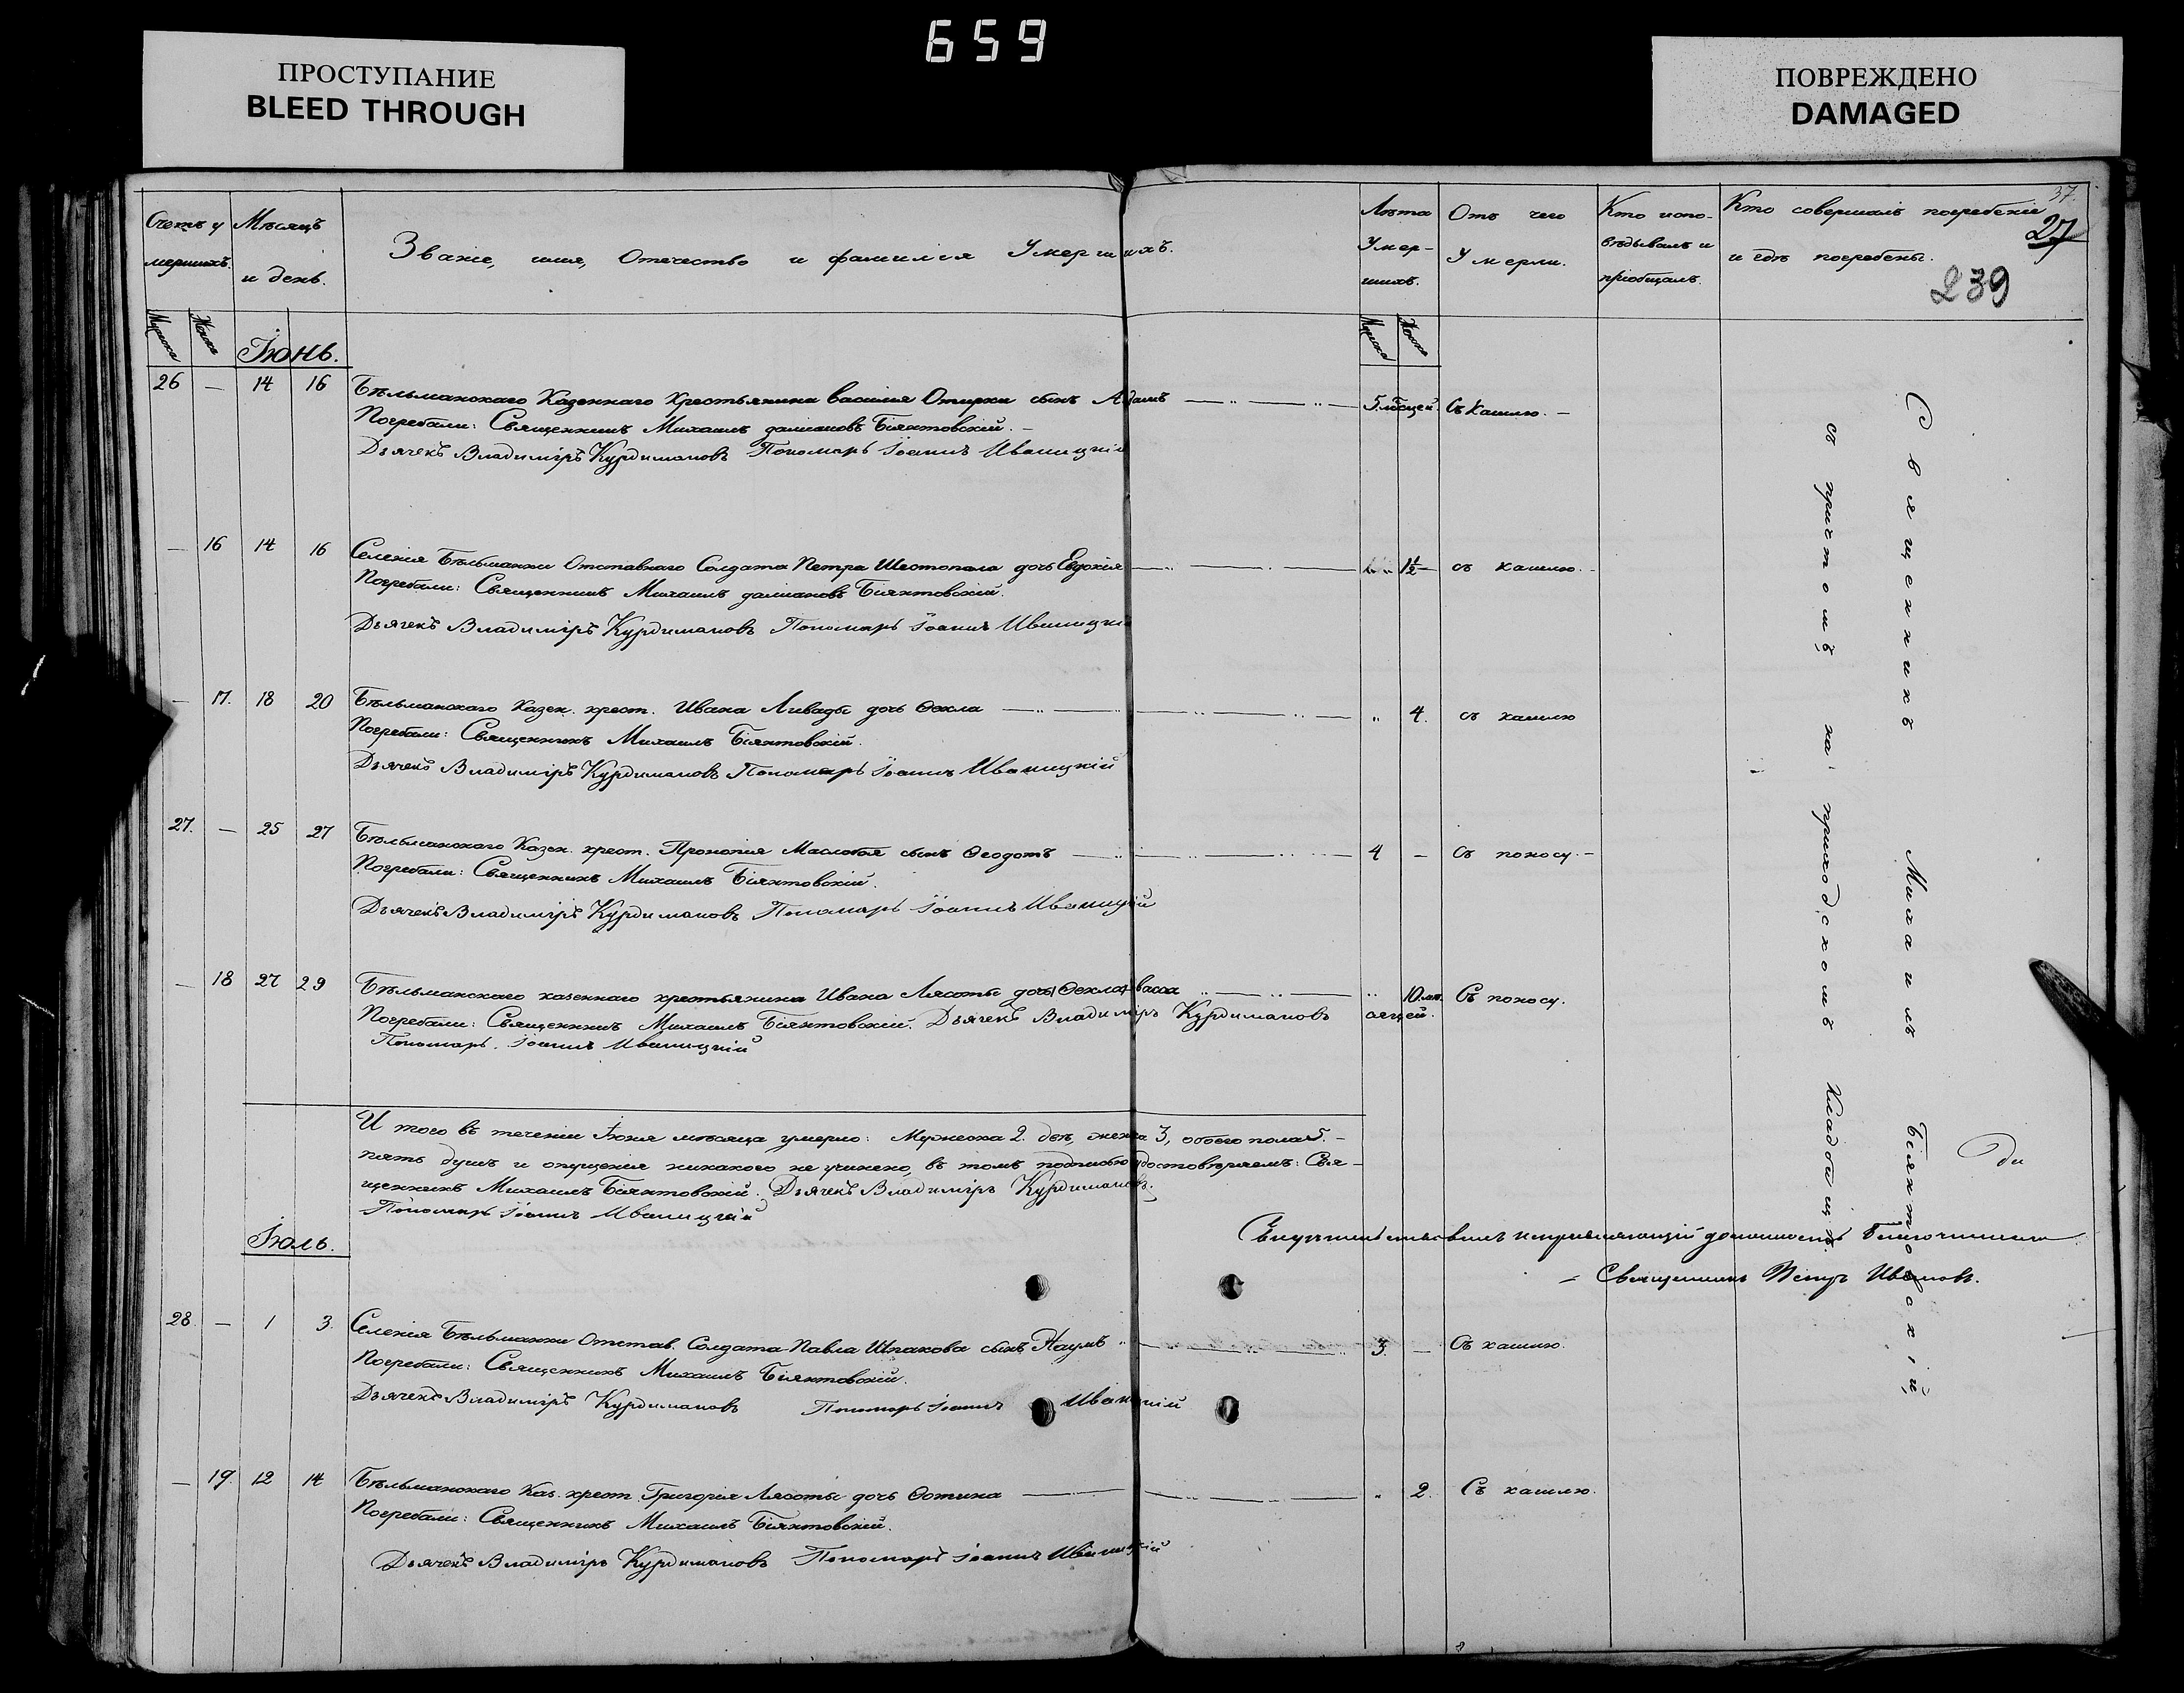 659
ПРОСТУПАНИЕ
BLEED THROUGH
ПОВРЕЖДЕНО
DAMAGED
37.
27
239
Счетъ у
мершихъ.
Мѣсяцъ
и день.
Званіе, имя, Отечество и фамилія Умершихъ.
Лѣта
Умер-
шихъ.
Отъ чего
Умерли.
Кто испо-
вѣдывалъ и
пріобщалъ.
Кто совершалъ погребеніе
и гдѣ погребены.
Іюнь.
26 — 14 16 Бѣльманскаго Казеннаго Крестьянина василія сынъ Адамъ 5. мѣсяцей. Съ Кашлю. —
Погребали: Священникъ Михаилъ Біянтовскій. —
Дьячекъ Владиміръ Курдимановъ Пономарь Іоаннъ Иваницкій
— 16 14 16 Селенія Бѣльманки Отставнаго Солдата Петра Шестопала дочь Евдокія 1½ съ кашлю.
Погребали: Священникъ Михаилъ Біянтовскій.
Дьячекъ Владиміръ Курдимановъ Пономарь Іоаннъ Иваницкій
— 17. 18 20 Бѣльманскаго Казен. крест. Ивана Ливады дочь Ѳекла „ 4. съ кашлю
Погребали: Священникъ Михаилъ Біянтовскій.
Дьячекъ Владиміръ Курдимановъ Пономарь Іоаннъ Иваницкій
27. — 25 27 Бѣльманскаго Казен. крест. Прокопія Маслобоя сынъ Ѳеодотъ 4 — Съ поносу. —
Погребали: Священникъ Михаилъ Біянтовскій.
Дьячекъ Владиміръ Курдимановъ Пономарь Іоаннъ Иваницкій
— 18 27 29 Бѣльманскаго казеннаго крестьянина Ивана Лясоты дочь васса „ 10. мѣ- Съ поносу.
Погребали: Священникъ Михаилъ Біянтовскій. Дьячекъ Владиміръ Курдимановъ сяцей.
Пономарь Іоаннъ Иваницкій
И того въ теченіи Іюня мѣсяца умерло: Мужеска 2. два, женска 3, обоего пола 5. —
пять душъ и опущенія никакого не учинено, въ томъ подписью удостовѣряемъ: Свя-
щенникъ Михаилъ Біянтовскій. Дьячекъ Владиміръ Курдимановъ.
Пономарь Іоаннъ Иваницкій
должность Благочиннаго
Священникъ Петръ Ивановъ.
Іюль.
28. — 1 3. Селенія Бѣльманки Отстав. Солдата Павла Шпакова сынъ Наумъ 3. — Съ кашлю.
Погребали: Священникъ Михаилъ Біянтовскій.
Дьячекъ Владиміръ Курдимановъ Пономарь Іоаннъ Иваницкій
— 19. 12 14 Бѣльманскаго Каз. крест. Григорія Лясоты дочь Ѳотина „ 2. Съ кашлю.
Погребали: Священникъ Михаилъ Біянтовскій.
Дьячекъ Владиміръ Курдимановъ Пономарь Іоаннъ Иваницкій
Священникъ Михаилъ Біянтовскій
съ причтомъ на приходскомъ Кладбищѣ.